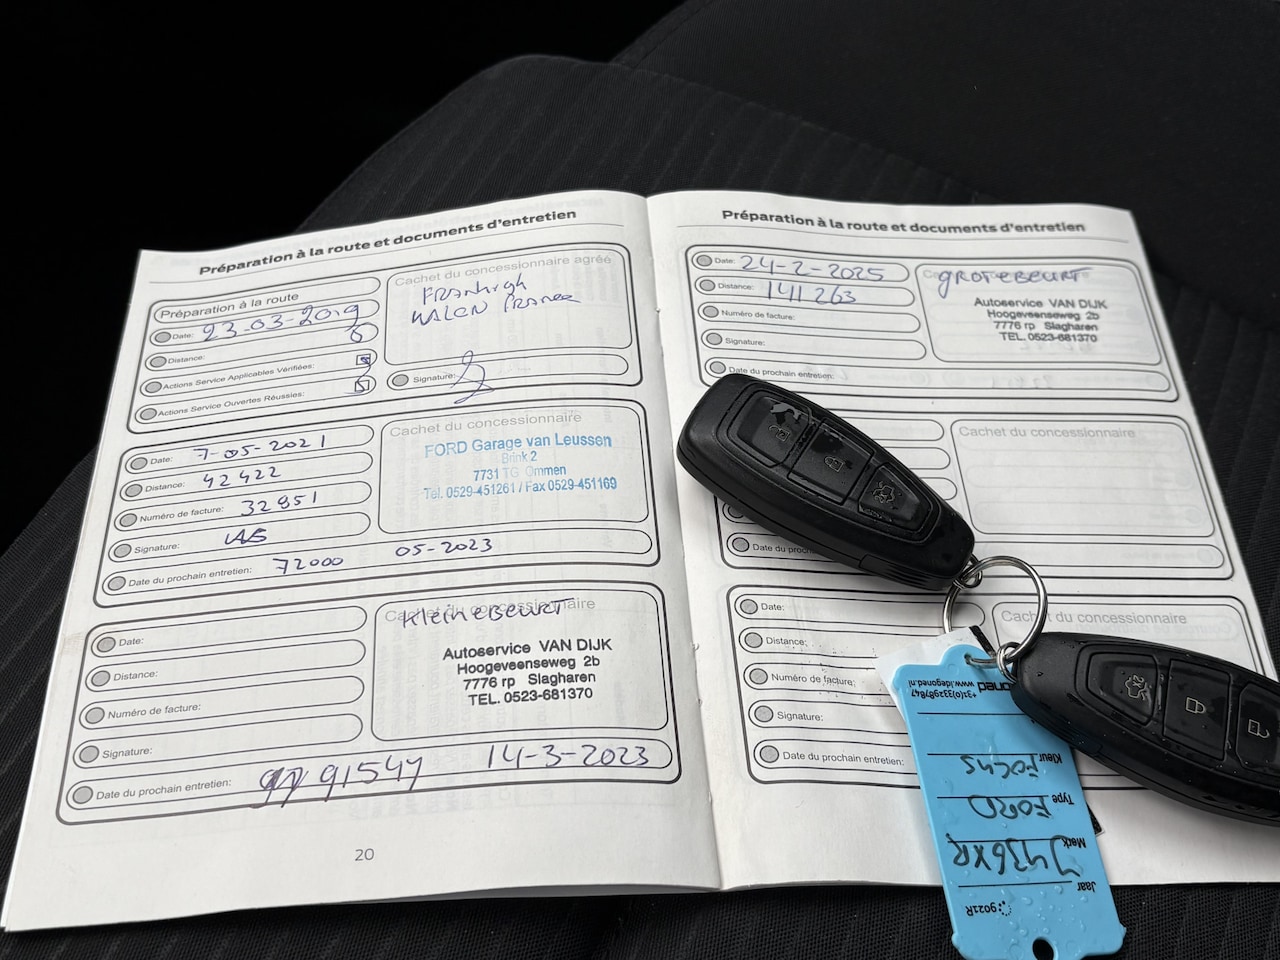 Préparation à la route et documents d'entretien
Préparation à la route
Date: 23-03-2019
Distance: 5
Actions Service Applicables Vérifiées:
Actions Service Ouvertes Réussies:
Cachet du concessionnaire agréé
Signature:
Date: 7-05-2021
Distance: 42422
Numéro de facture: 32951
Signature:
Date du prochain entretien: 72000 05-2023
Cachet du concessionnaire
FORD Garage van Leussen
Brink 2
7731 TG Ommen
Tel. 0529-451261 / Fax 0529-451169
Date:
Distance:
Numéro de facture:
Signature:
Date du prochain entretien: 91547 14-3-2023
Cachet du concessionnaire
KleineBEURT
Autoservice VAN DIJK
Hoogeveenseweg 2b
7776 rp Slagharen
TEL. 0523-681370
20
Préparation à la route et documents d'entretien
Date: 24-2-2025
Distance: 141263
Numéro de facture:
Signature:
Date du prochain entretien:
GROTEBEURT
Autoservice VAN DIJK
Hoogeveenseweg 2b
7776 rp Slagharen
TEL. 0523-681370
Cachet du concessionnaire
Date du
Date:
Distance:
Numéro de facture:
Signature:
Date du prochain entretien:
Cachet du concessionnaire
+31(0)332987847
www.idegoned.nl
Kleur FOCUS
Type FORD
Merk J436XR
Jaar
2X